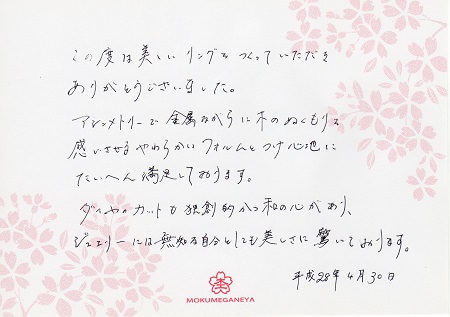 この度は美しいリングをつくっていただき
ありがとうございました。
アシンメトリーで金属ながらに木のぬくもりを
感じさせるやわらかいフォルムとつけ心地に
たいへん満足しております。
ダイヤのカットも独創的かつ和の心があり、
ジュエリーには無知な自分としても美しさに驚いております。
平成28年4月30日
MOKUMEGANEYA